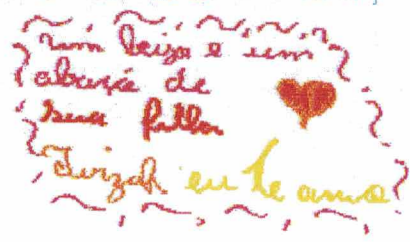 um beijo e um
abraço de
sua filha
Luizah eu te amo